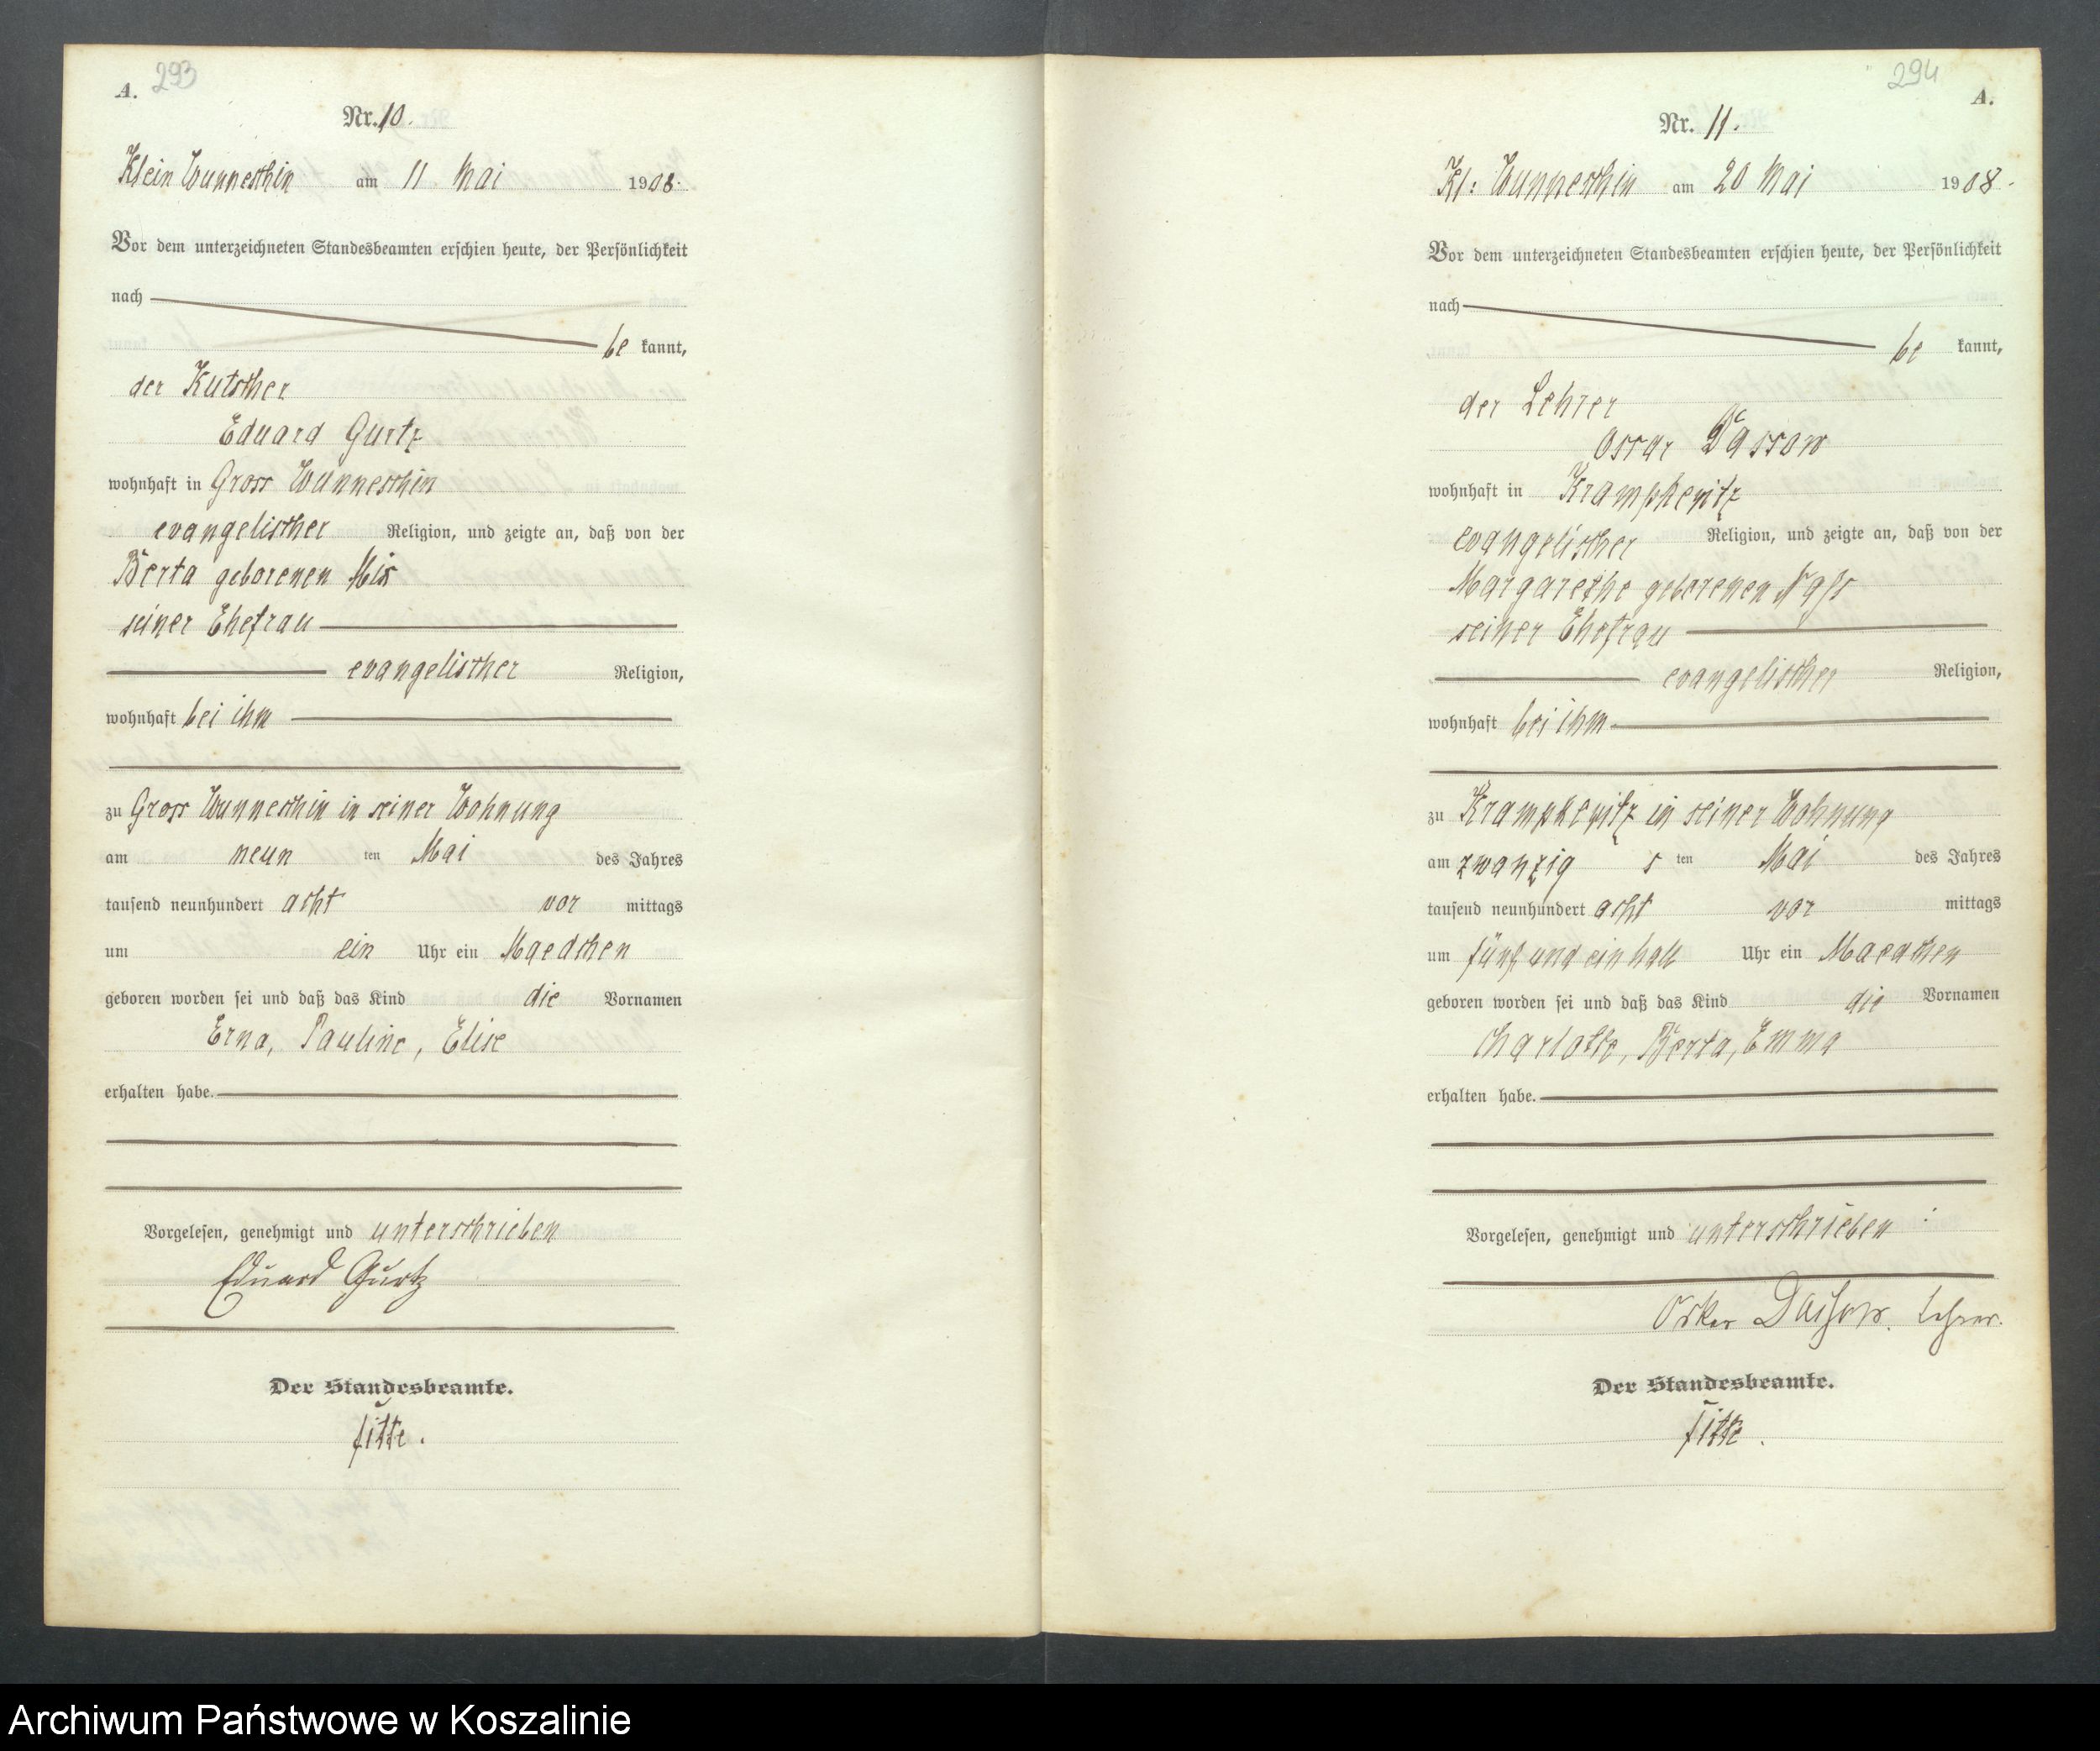 A. 293
Nr. 10.
Klein Wunneschin am 11 Mai 1908.
Vor dem unterzeichneten Standesbeamten erschien heute, der Persönlichkeit
nach
be kannt,
der Kutscher
Eduard Gurtz
wohnhaft in Gross Wunneschin
evangelischer Religion, und zeigte an, daß von der
Berta geborenen
seiner Ehefrau
evangelischer Religion,
wohnhaft bei ihm
zu Gross Wunneschin in seiner Wohnung
am neun ten Mai des Jahres
tausend neunhundert acht vor mittags
um ein Uhr ein Maedchen
geboren worden sei und daß das Kind die Vornamen
Erna, Pauline, Elise
erhalten habe.
Vorgelesen, genehmigt und unterschrieben
Eduard Gurtz
Der Standesbeamte.
294 A.
Nr. 11.
Kl: Wunneschin am 20 Mai 1908.
Vor dem unterzeichneten Standesbeamten erschien heute, der Persönlichkeit
nach
be kannt,
der Lehrer
Oscar Dassow
wohnhaft in Krampkewitz
evangelischer Religion, und zeigte an, daß von der
Margarethe geborenen
seiner Ehefrau
evangelischer Religion,
wohnhaft bei ihm
zu Krampkewitz in seiner Wohnung
am zwanzig s ten Mai des Jahres
tausend neunhundert acht vor mittags
um fünf und ein halb Uhr ein Maedchen
geboren worden sei und daß das Kind die Vornamen
Charlotte, Berta, Emma
erhalten habe.
Vorgelesen, genehmigt und unterschrieben
Oskar Dassow. Lehrer.
Der Standesbeamte.
Archiwum Państwowe w Koszalinie